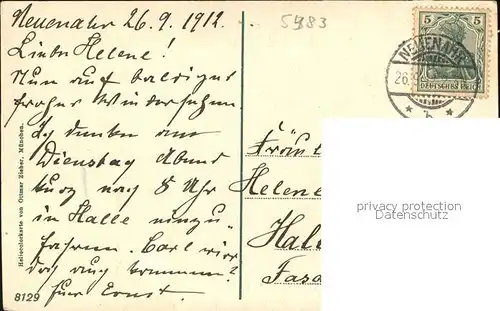 Neuenahr 26.9.1912.
Liebe Helene!
Nun auf baldiges
frohes Wiedersehen.
Ich denke am
Dienstag Abend
kurz nach 8 Uhr
in Halle einzu-
fahren. Carl wird
doch auch kommen?
Dein Ernst.
5983
5 5
NEUENAHR
26.9
DEUTSCHES REICH
* b *
Fräul
Helene
Hal
Fasa
privacy protection
Datenschutz
Heliocolorkarte von Ottmar Zieher, München.
8129